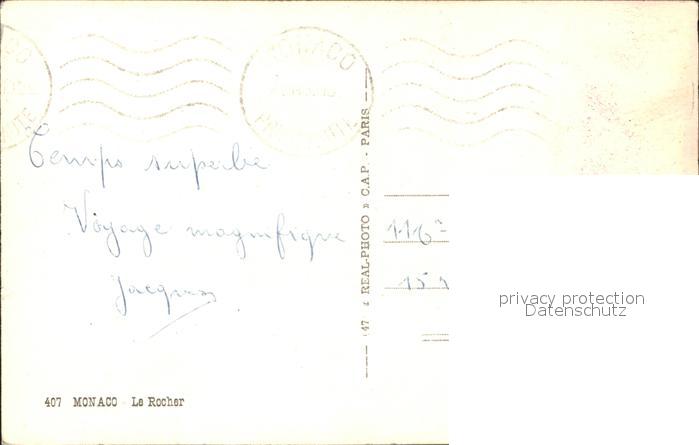 MONACO
Temps superbe
Voyage magnifique
Jacques
407 MONACO - Le Rocher
47 « REAL-PHOTO » C.A.P. - PARIS
116
15
privacy protection
Datenschutz